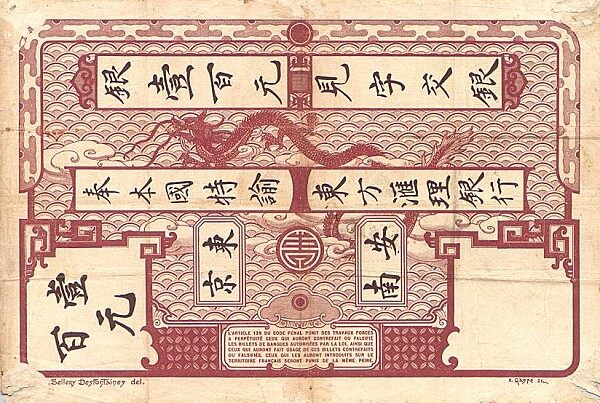 銀壹百元見字交銀
奉本國特諭東方滙理銀行
東京
安南
壹百元
L'ARTICLE 139 DU CODE PENAL PUNIT DES TRAVAUX FORCES
A PERPÉTUITÉ CEUX QUI AURONT CONTREFAIT OU FALSIFIÉ
LES BILLETS DE BANQUES AUTORISÉES PAR LA LOI, AINSI QUE
CEUX QUI AURONT FAIT USAGE DE CES BILLETS CONTREFAITS
OU FALSIFIÉS. CEUX QUI LES AURONT INTRODUITS SUR LE
TERRITOIRE FRANÇAIS SERONT PUNIS DE LA MÊME PEINE.
Bellery Desfontaines del.